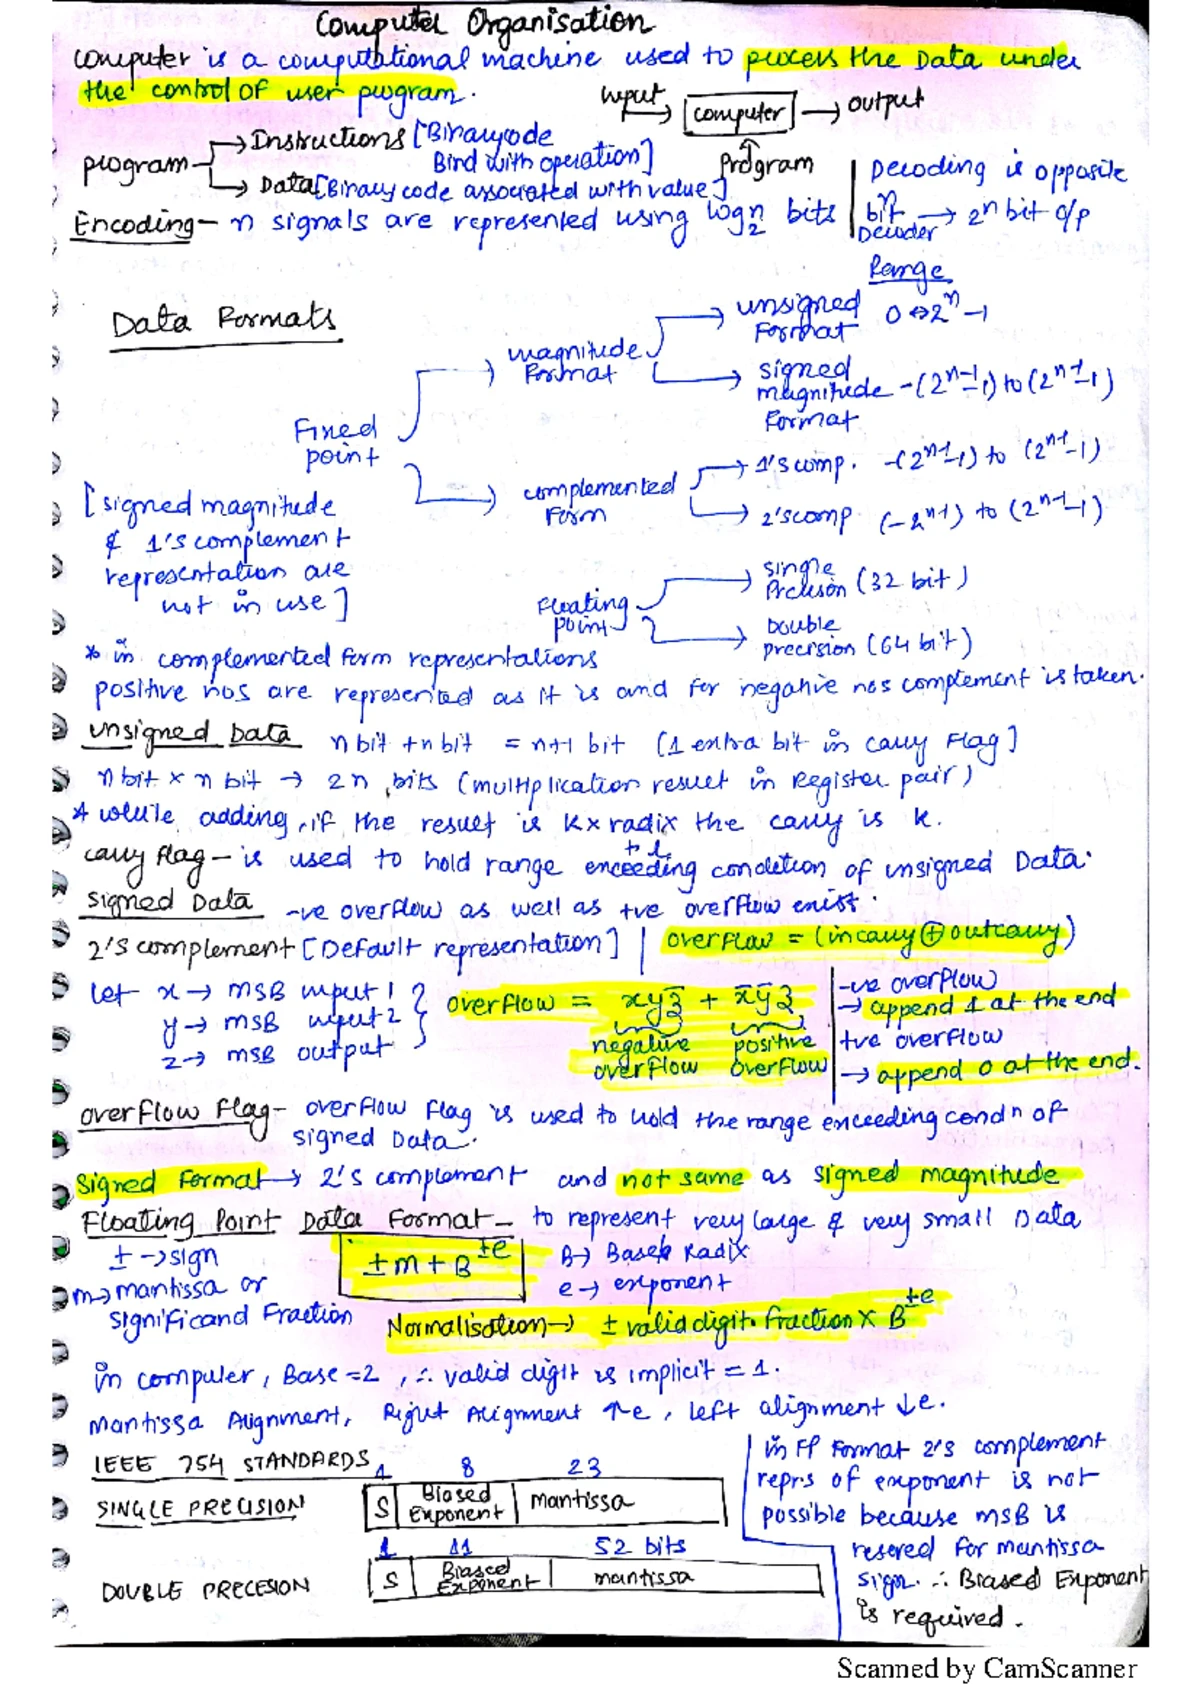 Computer Organisation
Computer is a computational machine used to process the Data under
the control of user program.
input → computer → output
Program
program → Instructions [Binary code
Bind with operation]
→ Data [Binary code associated with value]
Encoding - n signals are represented using log₂n bits
Decoding is opposite
n bit Decoder → 2ⁿ bit o/p
Data Formats
Range
Fixed point
magnitude Format
unsigned Format 0 ↔ 2ⁿ-1
signed magnitude Format -(2ⁿ⁻¹-1) to (2ⁿ⁻¹-1)
complemented Form
1's comp. -(2ⁿ⁻¹-1) to (2ⁿ⁻¹-1)
2's comp (-2ⁿ⁻¹) to (2ⁿ⁻¹-1)
[signed magnitude
& 1's complement
representation are
not in use]
Floating point
single Precision (32 bit)
Double precision (64 bit)
* in complemented form representations
positive nos are represented as it is and for negative nos complement is taken.
unsigned Data n bit + n bit = n+1 bit [1 extra bit in carry Flag]
n bit × n bit → 2n bits (multiplication result in Register pair)
* while adding, if the result is K × radix the carry is k.
carry flag - is used to hold range exceeding condition of unsigned Data.
Signed Data -ve overflow as well as +ve overflow exist.
2's complement [Default representation] | overflow = (incarry ⊕ outcarry)
let x → MSB input 1
y → MSB input 2
z → MSB output
overflow = xyz̄ + x̄ȳz
negative overflow
positive overflow
-ve overflow
→ append 1 at the end
+ve overflow
→ append 0 at the end.
overflow Flag - overflow Flag is used to hold the range exceeding condⁿ of
signed Data.
Signed Format → 2's complement and not same as signed magnitude
Floating Point Data Format - to represent very large & very small Data
± → sign
m → mantissa or
significand Fraction
±m + B^±e
B → Base
Radix
e → exponent
Normalisation → ± valid digit. fraction × B^±e
in computer, Base = 2, ∴ valid digit is implicit = 1.
Mantissa Alignment, Right Alignment ↑e, left alignment ↓e.
IEEE 754 STANDARDS
1 8 23
SINGLE PRECISION
S | Biased Exponent | mantissa
1 11 52 bits
DOUBLE PRECESION
S | Biased Exponent | mantissa
in FP Format 2's complement
reprs of exponent is not
possible because MSB is
reserved for mantissa
sign. ∴ Biased Exponent
is required.
Scanned by CamScanner